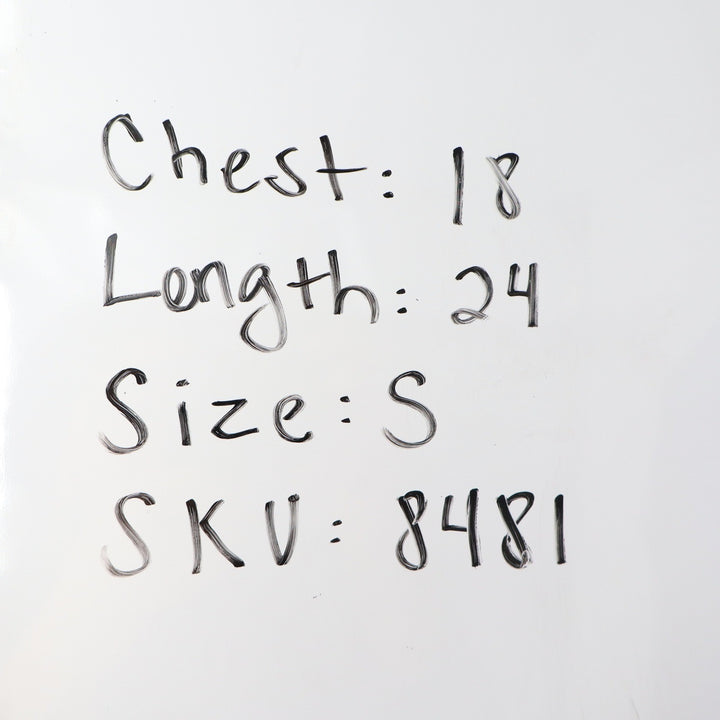 Chest: 18
Length: 24
Size: S
SKU: 8481